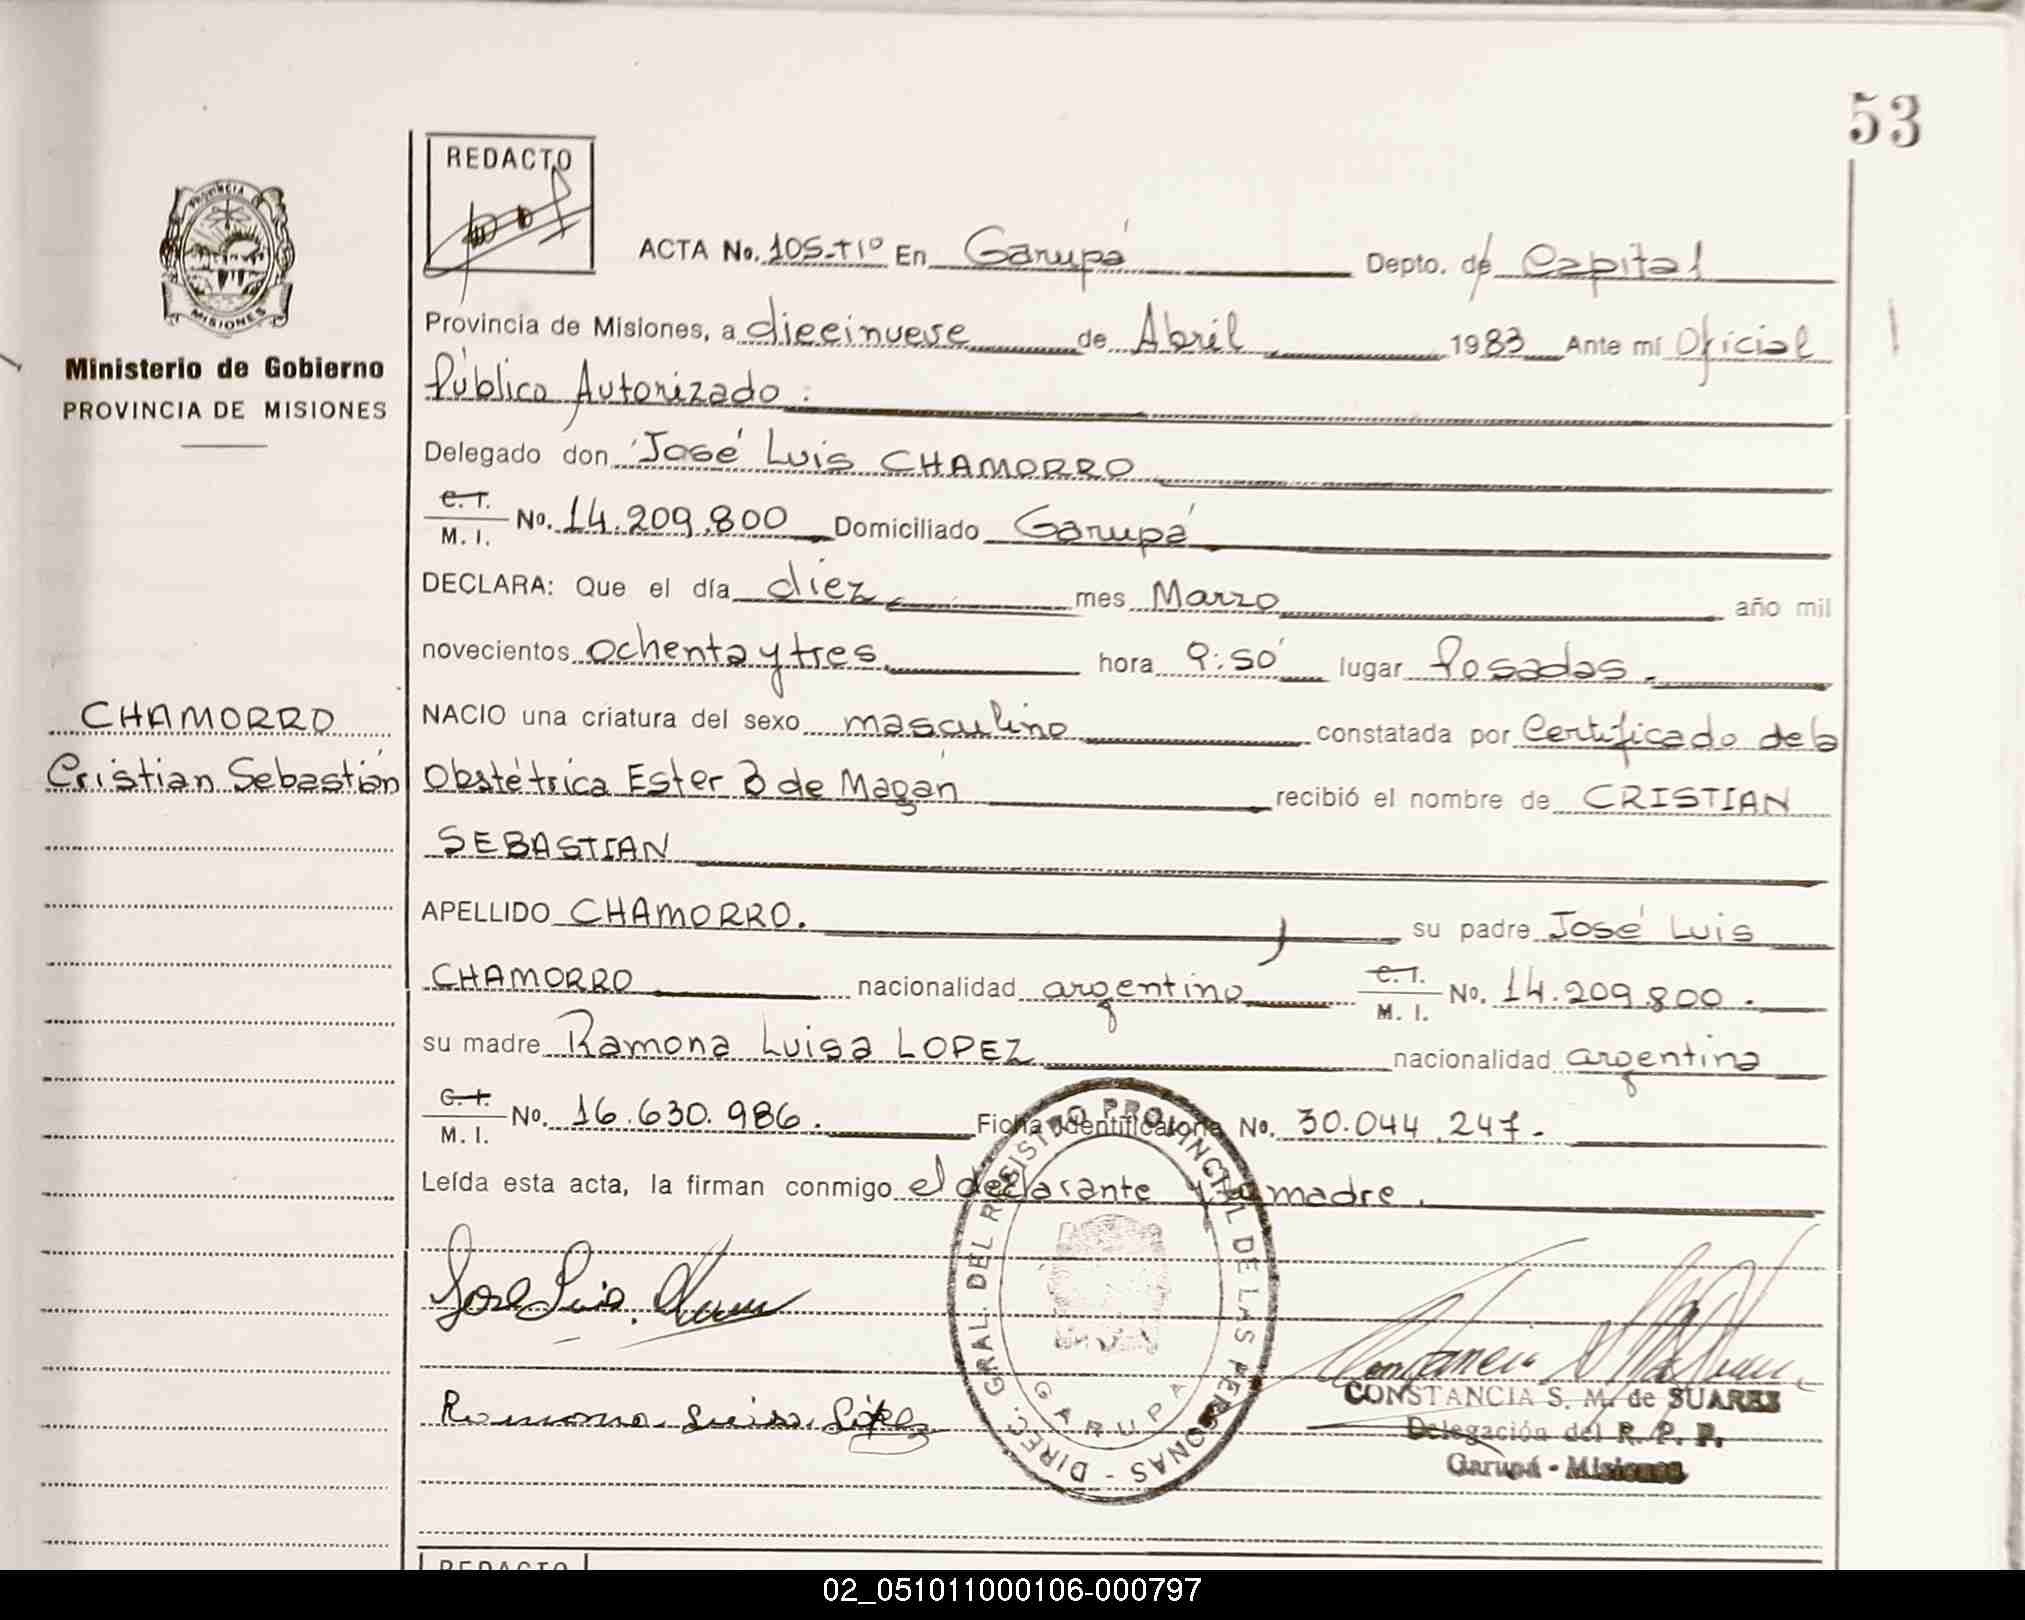 53
REDACTO
PROVINCIA
MISIONES
Ministerio de Gobierno
PROVINCIA DE MISIONES
ACTA No. 105-T1º En Garupá Depto. de Capital
Provincia de Misiones, a diecinueve de Abril 1983 Ante mí Oficial
Público Autorizado.
Delegado don José Luis CHAMORRO
C. I.
M. I. No. 14.209.800 Domiciliado Garupá
DECLARA: Que el día diez mes Marzo año mil
novecientos ochenta y tres hora 9:50 lugar Posadas.
CHAMORRO
Cristian Sebastián
NACIO una criatura del sexo masculino constatada por Certificado de la
Obstétrica Ester B de Magán recibió el nombre de CRISTIAN
SEBASTIAN
APELLIDO CHAMORRO. su padre José Luis
CHAMORRO nacionalidad argentino C. I.
M. I. No. 14.209.800.
su madre Ramona Luisa LOPEZ nacionalidad argentina
C. I.
M. I. No. 16.630.986. Ficha Identificatoria No. 30.044.247.
Leída esta acta, la firman conmigo el declarante y la madre.
DIREC. GRAL. DEL REGISTRO PROVINCIAL DE LAS PERSONAS -
GARUPA
José Luis
Ramona Luisa López
CONSTANCIA S. M. de SUAREZ
Delegación del R. P. P.
Garupá - Misiones
REDACTO
02_051011000106-000797